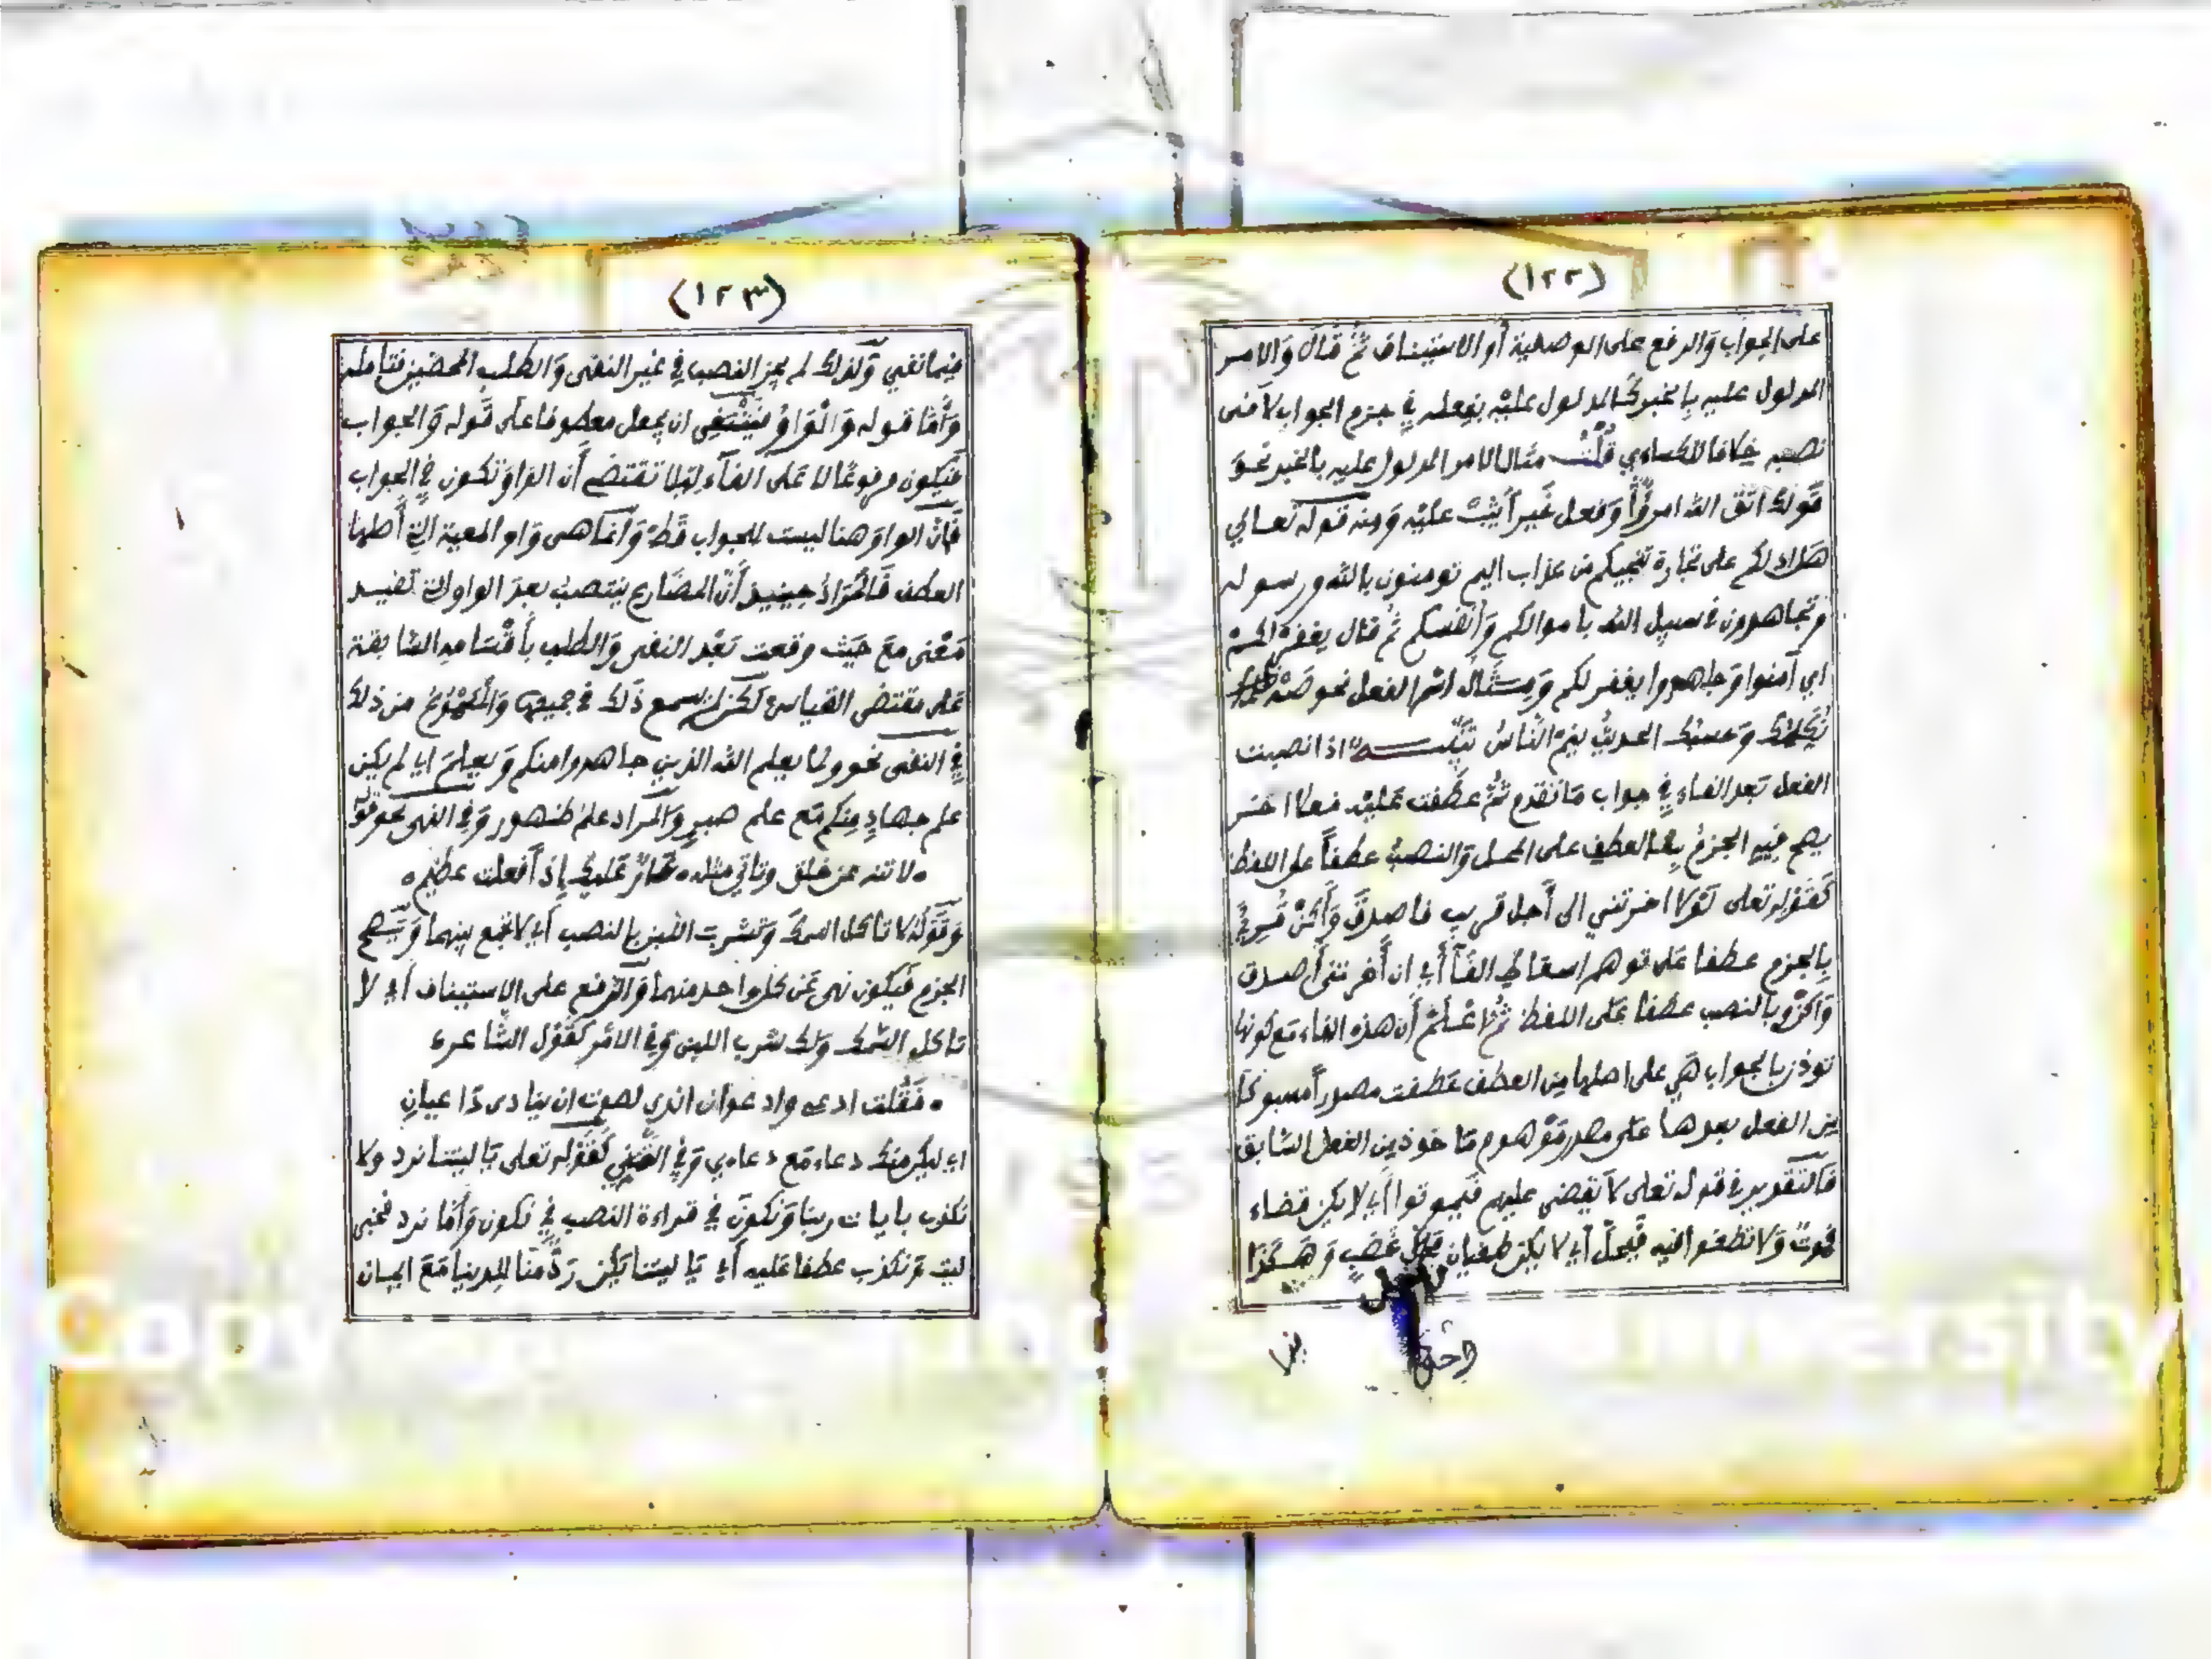 (١٢٢)
على الجواب والرفع على الوصفية أو الاستيناف ثُمَّ قال وَالامر
المدلول عليه بالخبر كالمدلول عليْه بفعله في جزم الجواب لا في
نصبه خلافا للكساءي قُلْتُ مثال الامر المدلول عليه بالخبر نحوَ
قَولك اتَّقَى الله امرؤٌ وَفعل خَيراً يُثَبْ عليْه وَمنه قوله تعالي
هل ادلكم على تجارة تنجيكم من عذاب اليم تومنون بالله ورسوله
وتجاهدون في سبيل الله باموالكم وَأنفسكم ثُمَّ قال يغفرْ لكمْ
اي آمنوا وَجاهدوا يغفر لكم وَمِثَالُ اسْم الفعل نحو صَهْ
وَحسبُك الحديثُ ينمْ النَّاسُ تَنْبِيهٌ اذا نصبت
الفعل بَعد الفاء في جواب مَا تقدم ثُمَّ عطفت عَليْه فعلا اخر
يصح فيْه الجزمُ بالعطف على المحل وَالنصبُ عطفاً على اللفظ
كَقَوْله تعلى لَوْلا اخرتني الى أَجل قريب فاصدقَ وَأَكنْ قُرِئَ
بالجزم عطفا عَلى توهم إسقاط الفَاْ أَيْ ان أَخرتني أَصدق
وَاكنْ وبالنصب عطفا عَلى اللفظ ثُمَّ اعْلَمْ أَن هذه الفاء مَع كونها
توذن بالجواب هَي على اصلها مِن العطف عَطفت مصدراً مسبوكا
مِن الفعل بعدها عَلى مصدر مَوْهوم مَاخوذ مِن الفعل السَّابق
فَالتَّقدير في قوله تعلى لاَ يَقضى عليهم فَيَموتوا أَي لا يكن قضاء
فموتٌ وَلا تطغوا فيه فَيحلَّ أَي لا يكن طغيان فحلُّ غَضَبٍ وَهَكَذَا
(١٢٣)
فيما بقي وَلذلك لم يجز النصب في غير النفى وَالطلب المحضين فتامله
وَأَمَّا قوله وَالْوَاوُ فَينْبَغي ان يجعل معطوفا عَلى قَوله وَالجواب
فَيَكون مرفوعًا لا عَلى الفآء لِئلا تقتضي أَن الواوَ تكون في الجواب
فَإنَّ الواوَ هنا ليست للجواب قَطْ وَإنَّما هى وَاو المعية التي أَصلها
العطف فَالْمُرَادُ حِينيذ أَنَّ المضَارع ينتصبُ بعدَ الواو التي تفيد
مَعْنى مَعَ حَيْثُ وقعت بَعْد النفى وَالطلب بأَقْسَامه السَّابقة
عَلى مقتضى القياس لكن لم يسمع ذَلك في جميعها وَالْمَسْمُوعُ من ذلك
في النفى نحو ولما يعلم الله الذين جاهدوا منكم وَيعلمَ اي لم يكن
علم جهادٍ منكم مَع علم صبرٍ وَالمراد علمُ ظهور وَفِي النهى نحو قوْ
لا تنه عن خلق وتاتي مثله عَارٌ عَليْك إِذَا فعلت عظيم
وَقَوْلُكَ لا تاكل السمكَ وَتشربَ اللبن بالنصب أَي لا تجمع بينهما وَيَصح
الجزم فَيكون نهى عَن كل واحد منهما وَالرفع على الاستيناف أَي لا
تاكل السَّمك وَلك شرب اللبن وَفي الاَمْر كَقَوْل الشَّاعر
فَقُلت ادعى وادعوَ ان اندى لصوت ان ينادى دَاعيانِ
اي ليكن منك دعاء مَع دعاءي وَفي التَّمَنِّي كَقَوْله تعلى يَا ليتنا نرد ولا
نكذب بايات ربنا وَنكونَ في قراءة النصب في نكون وَأَمَّا نرد فخبر
ليت وَنكذب عطفا عَليه أَي يَا ليتنا يَكُن رَدٌّ مِنَّا للدنيا مَعَ ايمان